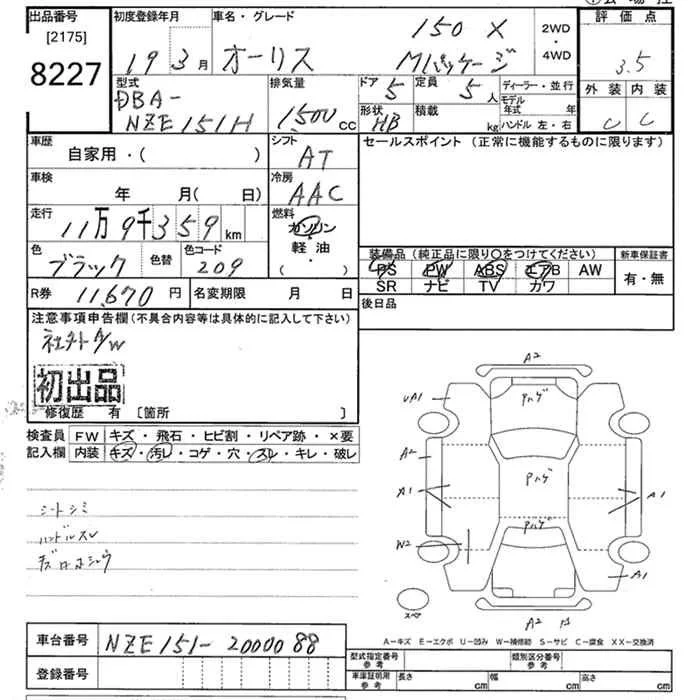 出品番号 初度登録年月 車名・グレード 150 X 2WD ・ 4WD 評価点
[2175] 19 3月 オーリス Mパッケージ 3.5
8227
型式 DBA- 排気量 ドア 5 定員 5人 ディーラー・並行 外装 内装
NZE151H 1500 cc 形状 HB 積載 kg モデル年式 年 C C
ハンドル 左・右
車歴 自家用・( ) シフト AT セールスポイント (正常に機能するものに限ります)
車検 年 月( 日) 冷房 AAC
走行 11万9千359km 燃料 ガソリン
軽油
・
( )
色 ブラック 色替 色コード 209 装備品 (純正品に限り○をつけてください) 新車保証書
PS PW ABS エアB AW 有・無
SR ナビ TV カワ
R券 11,670円 名変期限 月 日 後日品
注意事項申告欄(不具合内容等は具体的に記入して下さい)
社外A/W
初出品
修復歴 有 [箇所 ]
検査員 FW キズ・飛石・ヒビ割・リペア跡・×要
記入欄 内装 キズ・汚レ・コゲ・穴・スレ・キレ・破レ
シートシミ
ハンドルスレ
A2
UA1 Pハゲ
A2 Pハゲ
A1 A1
Pハゲ
W2
A1
スペア
A2
A-キズ E-エクボ U-凹み W-補修跡 S-サビ C-腐食 XX-交換済
車台番号 NZE151-2000088
登録番号
型式指定番号 参考 類別区分番号 参考
車庫証明用 参考 長さ cm 幅 cm 高さ cm